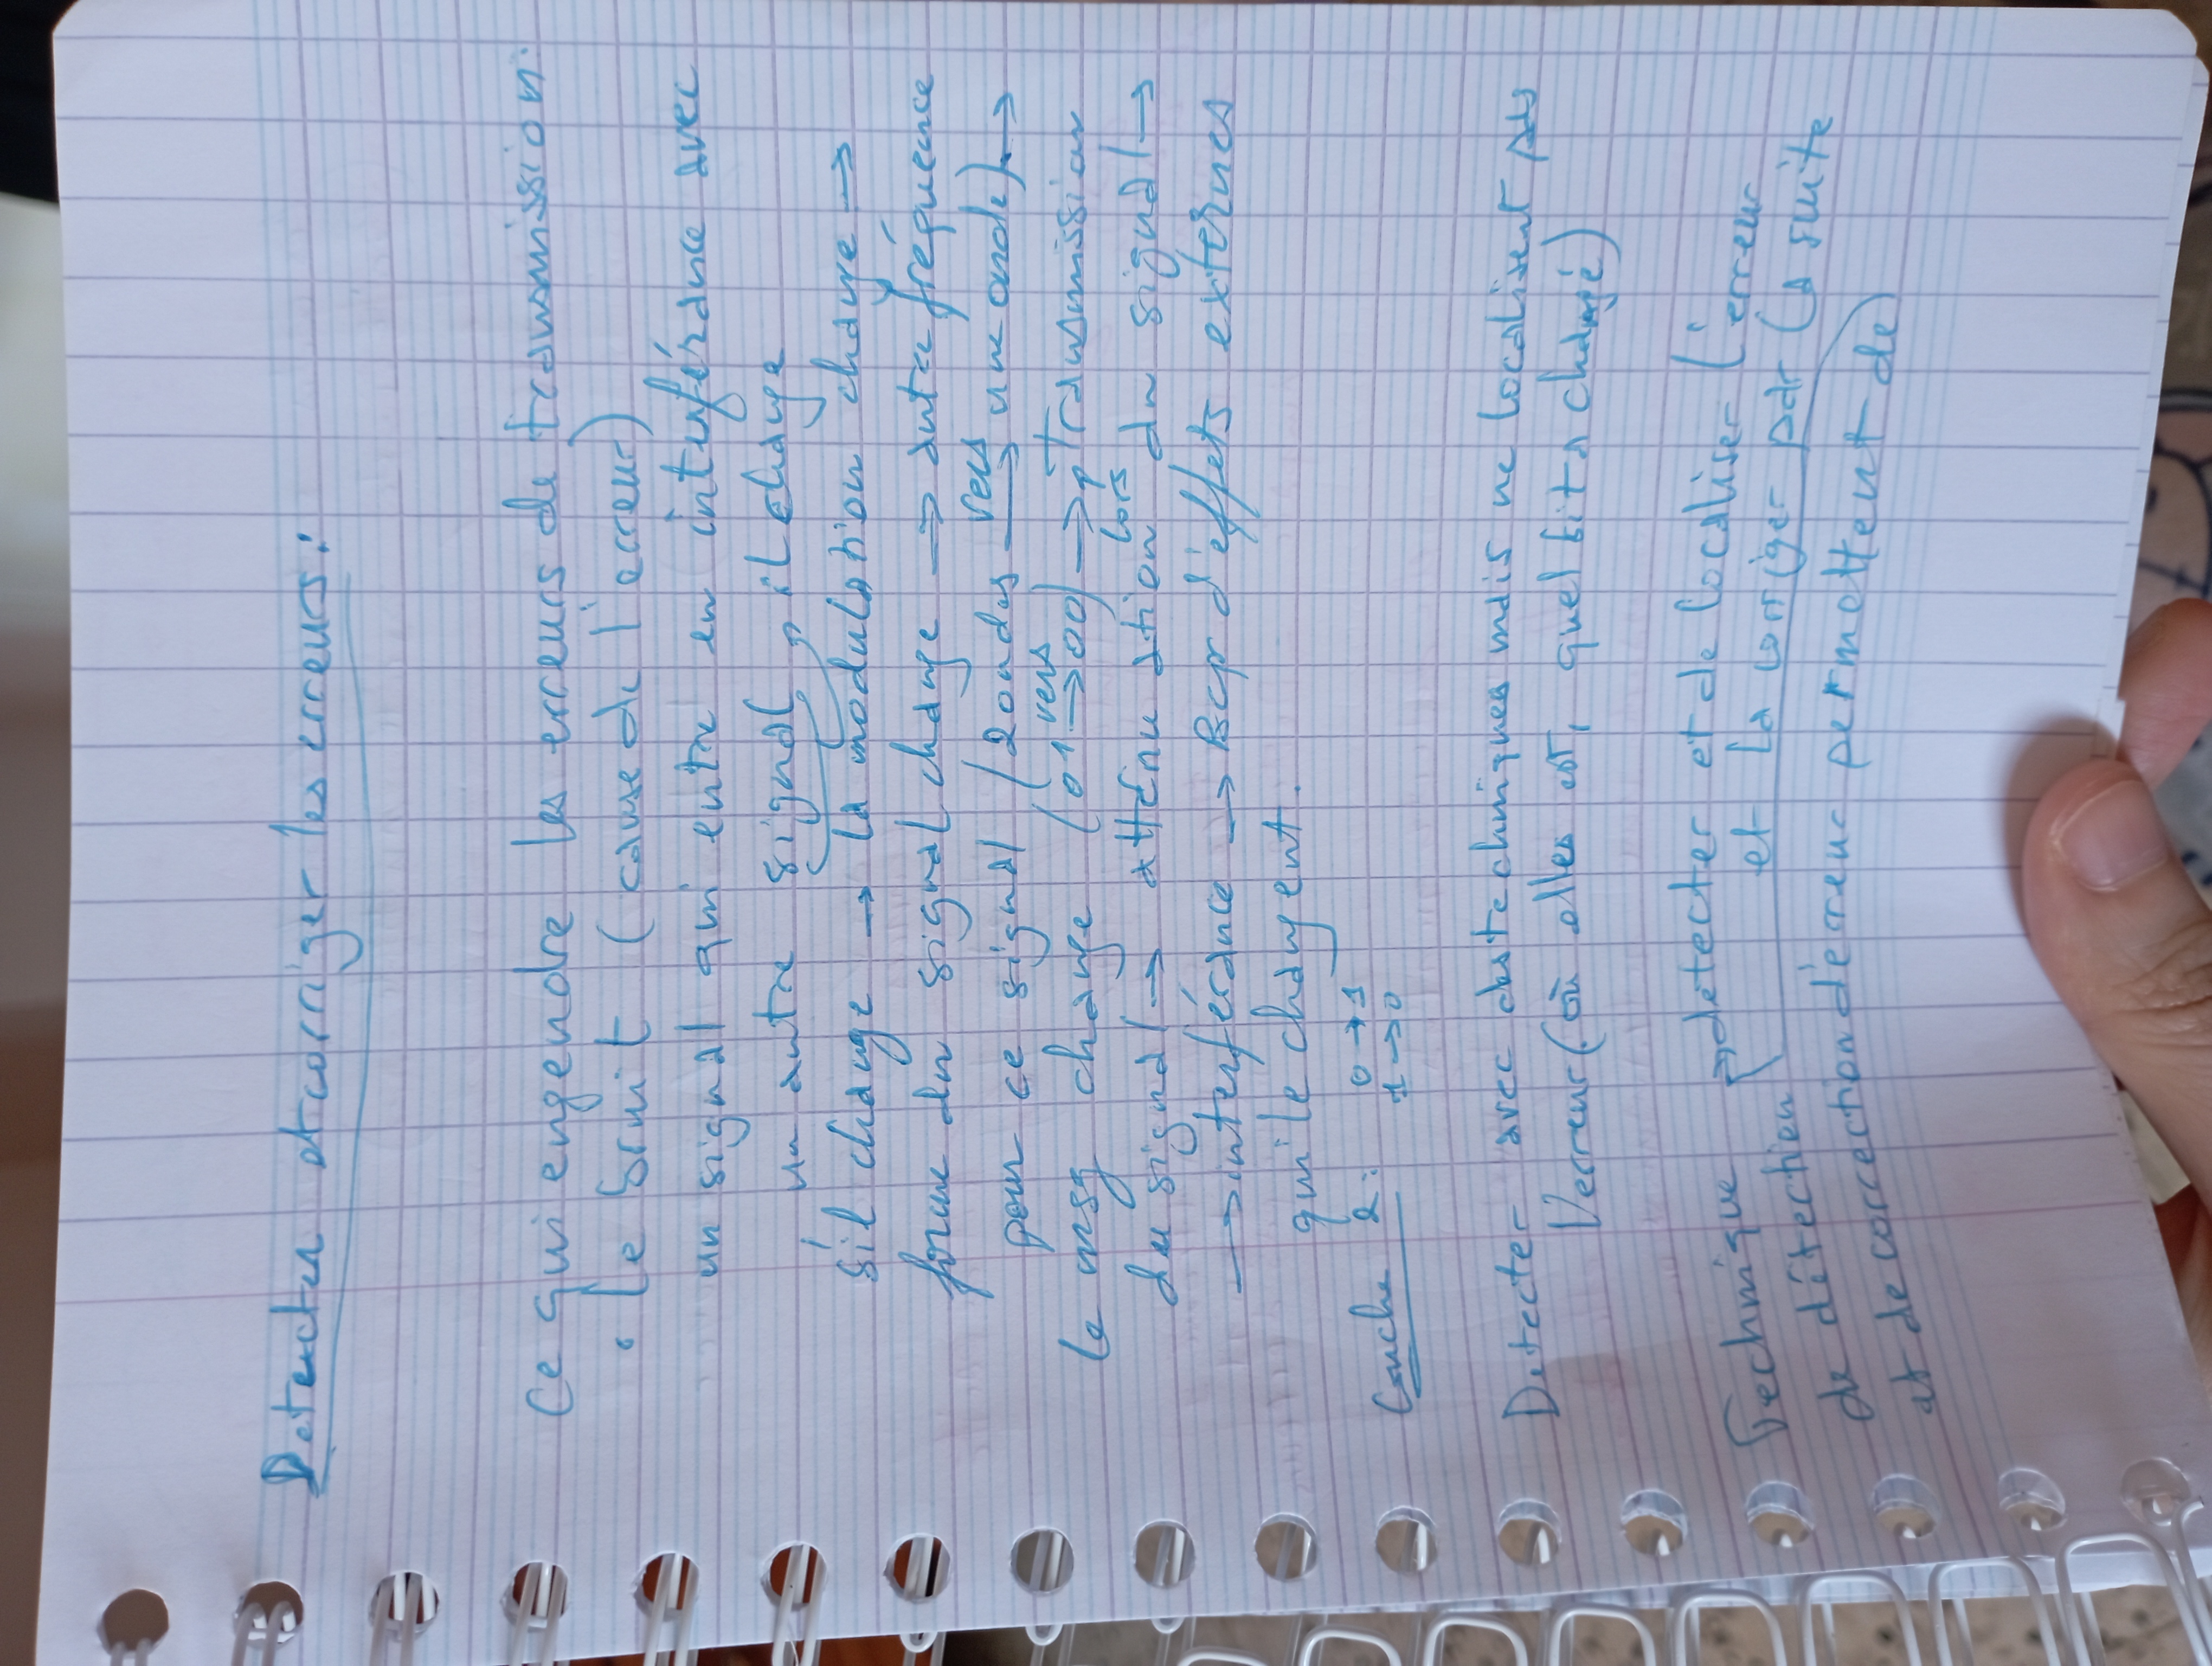 Detecter et corriger les erreurs :
Ce qui engendre les erreurs de transmission :
• Le bruit (cause de l'erreur)
un signal qui entre en interférance avec
un autre signal, il change
s'il change → la modulation change →
forme du signal change → autre fréquence
pour ce signal (2 ondes vers → une onde) →
le msg change (01 vers → 00) → Transmission
lors
du signal → atténuation du signal →
→ interférance → Bcp d'effets externes
qui le changent.
Couche 2 : 0 → 1
1 → 0
Detecter avec des techniques mais ne localisent pas
l'erreur (où elles est, quel bit a changé)
Technique → detecter et de localiser l'erreur
de détection et la corriger par la suite
et de correction d'erreur permettent de